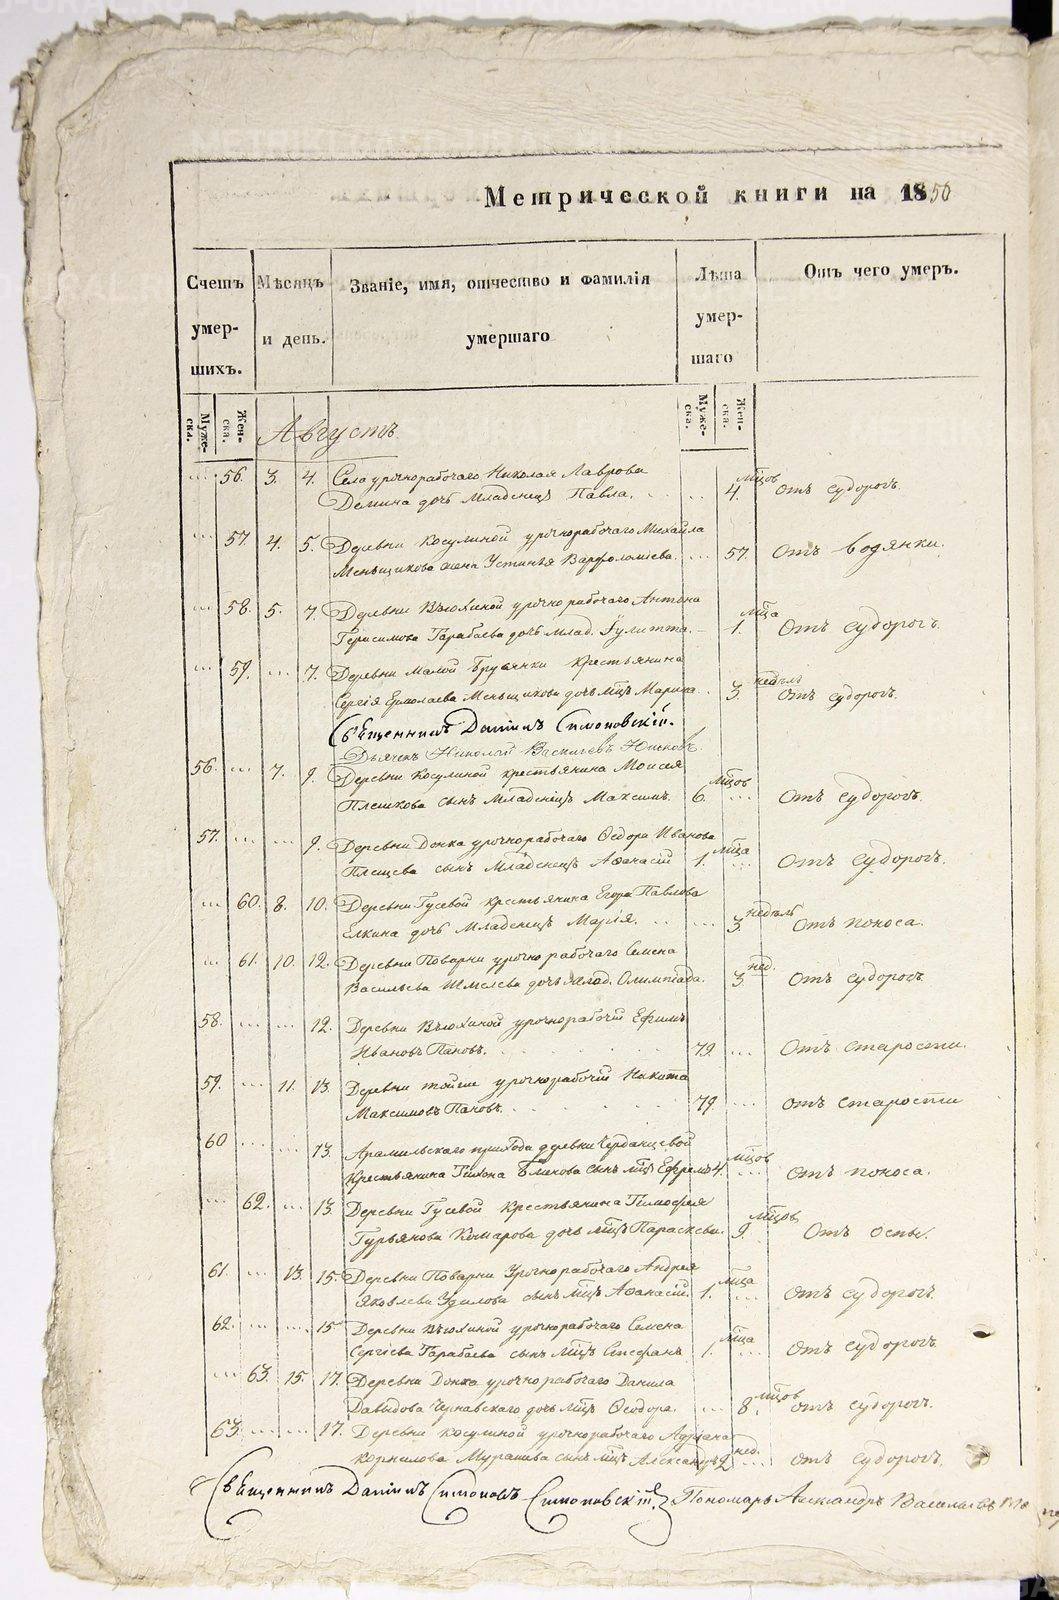 Метрической книги на 1850
Счетъ умер- шихъ.
Мѣсяцъ и день.
Званіе, имя, отчество и фамилія умершаго
Лѣта умер- шаго
Отъ чего умеръ.
Муже- ска.
Жен- ска.
Муже- ска.
Жен- ска.
Августъ
56. 3. 4. Села урочнорабочаго Николая Лаврова мцов
Демина дочь младенецъ Павла. 4. отъ судорогъ.
57. 4. 5. Деревни Косулиной урочнорабочаго Михайла
Меньщикова жена Устинья Варфоломіева. 57. Отъ водянки.
58. 5. 7. Деревни Вьюхиной урочнорабочаго Антона мца
Герасимова Гарабаева дочь млад. Іулитта. 1. Отъ судорогъ.
59. 7. Деревни Малой Брусянки крестьянина недѣль
Сергія Ермолаева Меньщикова дочь мцъ Марина. 3. отъ судорогъ.
Священникъ Даніилъ Симоновскій.
Дьячекъ Николай Васильевъ
56. 7. 9. Деревни Косулиной крестьянина Моисея мцов
Плешкова сынъ младенецъ Максимъ. 6. Отъ судорогъ.
57. 9. Деревни Донка урочнорабочаго Ѳедора Иванова мца
Плещева сынъ младенецъ Аѳанасій 1. Отъ судорогъ.
60. 8. 10. Деревни Гусевой крестьянина Егора Павлова недѣль
Елкина дочь младенецъ Марія. 3. Отъ поноса.
61. 10. 12. Деревни Поварни урочнорабочаго Семена нед.
Васильева Шмелева дочь млад. Олимпіада. 3. Отъ судорогъ
58. 12. Деревни Вьюхиной урочнорабочій Ефимъ
Ивановъ Пановъ. 79. Отъ старости.
59. 11. 13. Деревни тойже урочнорабочій Никита
Максимовъ Пановъ. 79. отъ старости
60 13. Арамильскаго прихода деревни Черданцевой мцов
крестьянина Тихона Блинова сынъ мцъ Ефремъ 4. отъ поноса.
62. 13. Деревни Гусевой крестьянина Тимоѳея мцов
Гурьянова Комарова дочь мцъ Параскева. 9. Отъ оспы.
61. 13. 15. Деревни Поварни Урочнорабочаго Андрея мца
Яковлева Удилова сынъ мцъ Аѳанасій. 1. Отъ судорогъ.
62. 15 Деревни Вьюхиной урочнорабочаго Семена мца
Сергіева Гарабаева сынъ мцъ Стефанъ 1. Отъ судорогъ.
63. 15. 17. Деревни Донка урочнорабочаго Данила мцов
Давыдова Чернавскаго дочь мцъ Ѳеодора. 8. отъ судорогъ.
63. 17. Деревни Косулиной урочнорабочаго Адріана нед.
Корнилова Мурашева сынъ мцъ Александръ 2. отъ судорогъ.
Священникъ Даніилъ Симоновъ Симоновскій. Пономарь Александръ Васильевъ